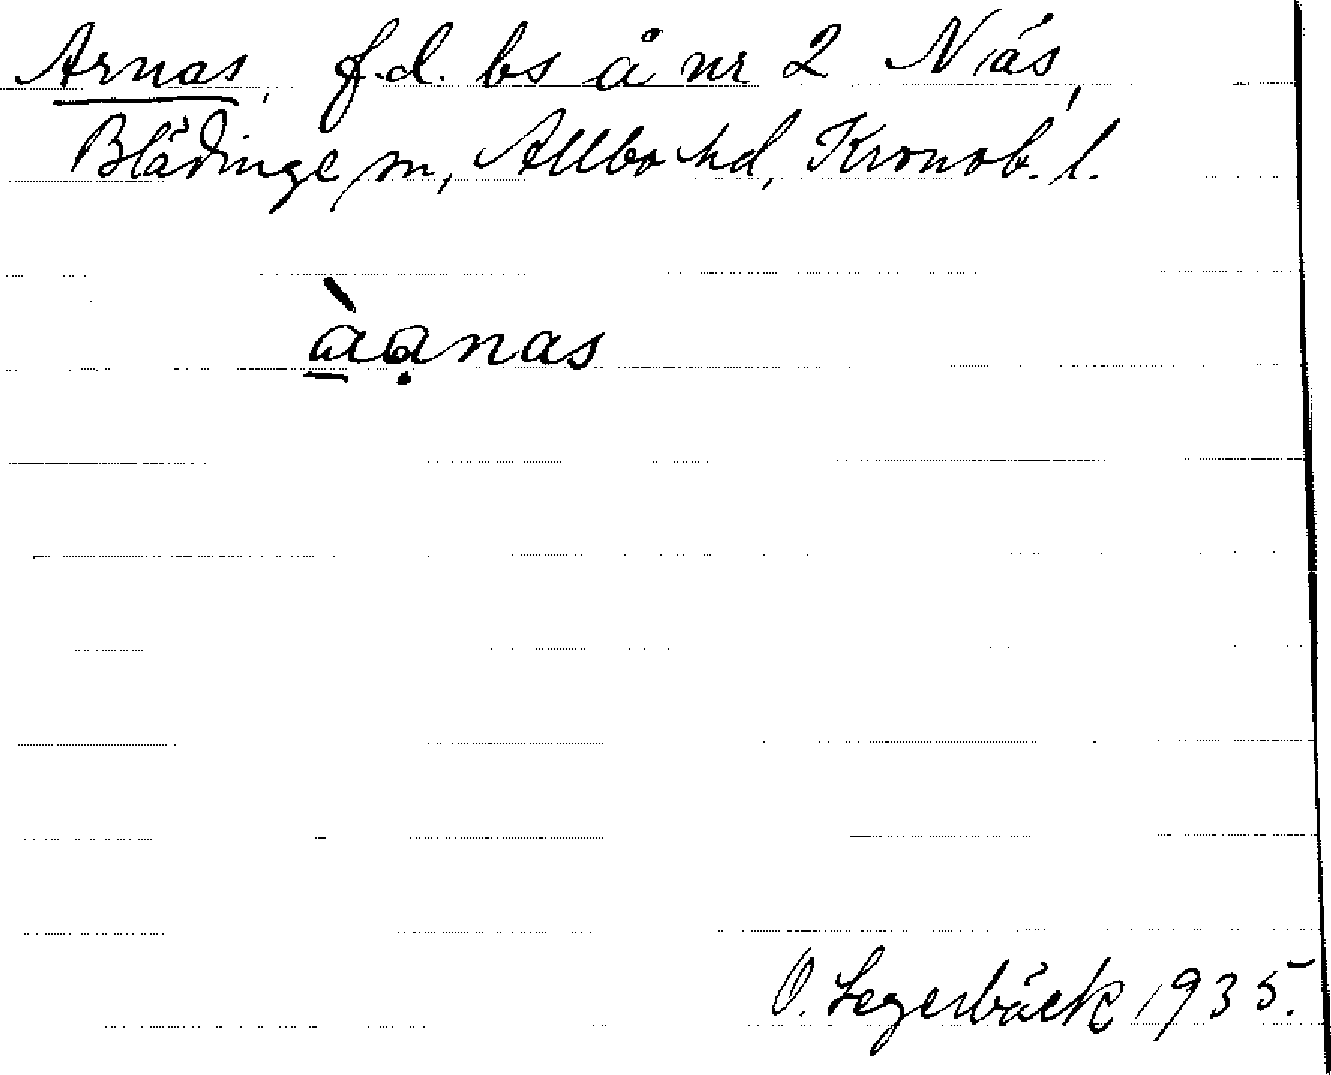 Arnas, f.d. bs å nr 2 Näs,
Blädinge sn, Allbo hd, Kronob. l.
àạnas
O. Segerbäck 1935.